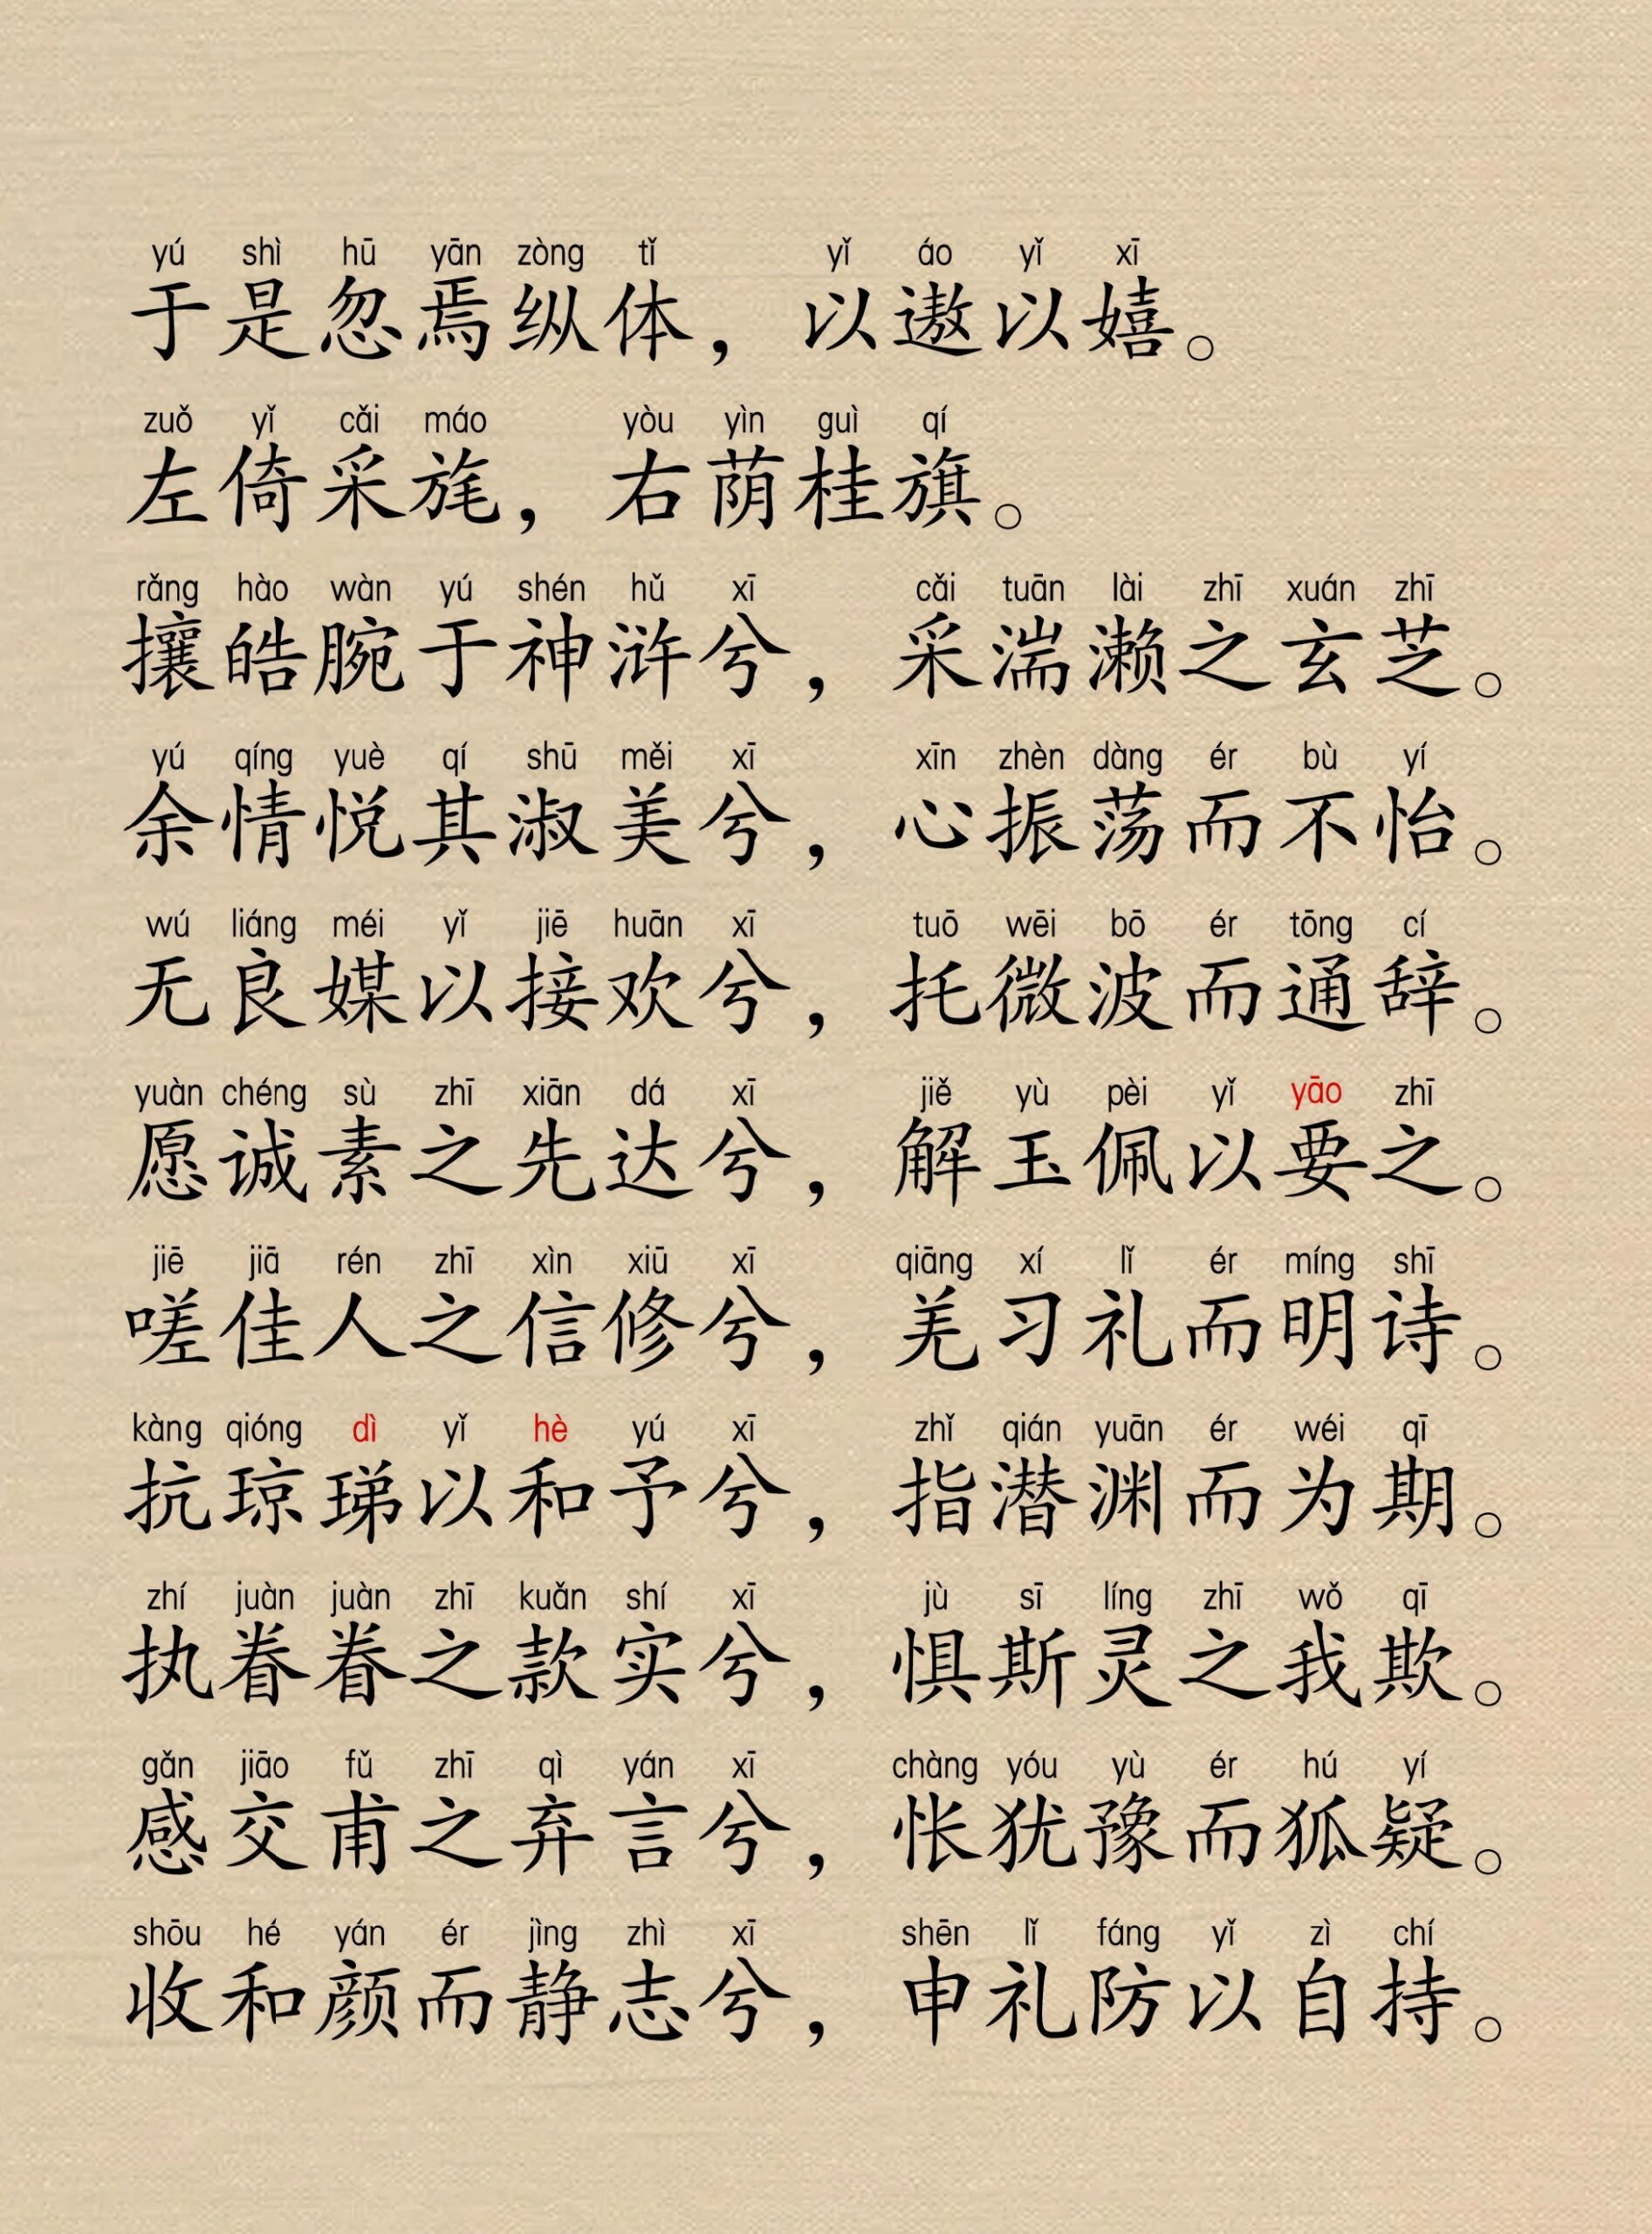 yú shì hū yān zòng tǐ yǐ áo yǐ xī
于是忽焉纵体，以遨以嬉。
zuǒ yǐ cǎi máo yòu yìn guì qí
左倚采旄，右荫桂旗。
rǎng hào wàn yú shén hǔ xī cǎi tuān lài zhī xuán zhī
攘皓腕于神浒兮，采湍濑之玄芝。
yú qíng yuè qí shū měi xī xīn zhèn dàng ér bù yí
余情悦其淑美兮，心振荡而不怡。
wú liáng méi yǐ jiē huān xī tuō wēi bō ér tōng cí
无良媒以接欢兮，托微波而通辞。
yuàn chéng sù zhī xiān dá xī jiě yù pèi yǐ yāo zhī
愿诚素之先达兮，解玉佩以要之。
jiē jiā rén zhī xìn xiū xī qiāng xí lǐ ér míng shī
嗟佳人之信修兮，羌习礼而明诗。
kàng qióng dì yǐ hè yú xī zhǐ qián yuān ér wéi qī
抗琼珶以和予兮，指潜渊而为期。
zhí juàn juàn zhī kuǎn shí xī jù sī líng zhī wǒ qī
执眷眷之款实兮，惧斯灵之我欺。
gǎn jiāo fǔ zhī qì yán xī chàng yóu yù ér hú yí
感交甫之弃言兮，怅犹豫而狐疑。
shōu hé yán ér jìng zhì xī shēn lǐ fáng yǐ zì chí
收和颜而静志兮，申礼防以自持。